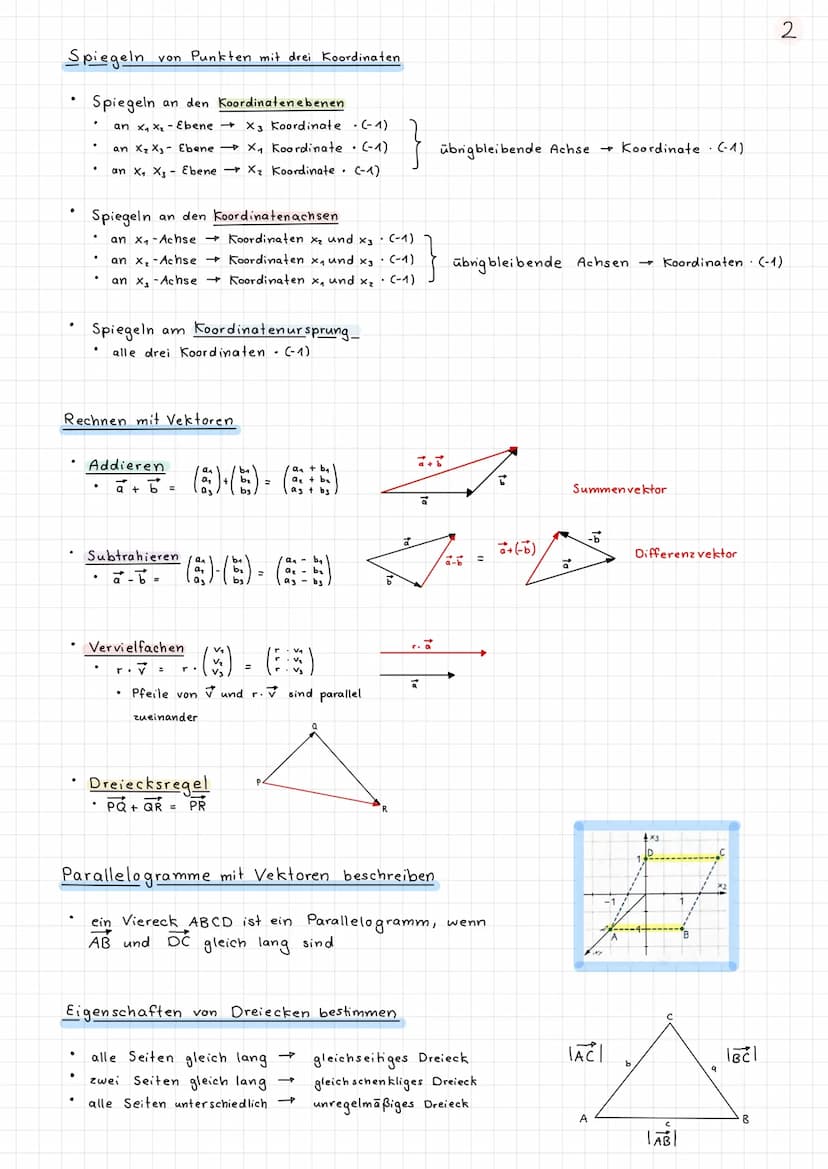 2
Spiegeln von Punkten mit drei Koordinaten
• Spiegeln an den Koordinatenebenen
• an x₁x₂-Ebene → x₃ Koordinate · (-1)
• an x₂x₃- Ebene → x₁ Koordinate · (-1)
• an x₁ x₃ - Ebene → x₂ Koordinate · (-1)
übrigbleibende Achse → Koordinate · (-1)
• Spiegeln an den Koordinatenachsen
• an x₁-Achse → Koordinaten x₂ und x₃ · (-1)
• an x₂-Achse → Koordinaten x₁ und x₃ · (-1)
• an x₃-Achse → Koordinaten x₁ und x₂ · (-1)
übrigbleibende Achsen → Koordinaten · (-1)
• Spiegeln am Koordinatenursprung
• alle drei Koordinaten · (-1)
Rechnen mit Vektoren
• Addieren
• a⃗ + b⃗ = (a₁ a₂ a₃) + (b₁ b₂ b₃) = (a₁ + b₁ a₂ + b₂ a₃ + b₃)
a⃗+b⃗
a⃗
b⃗
Summenvektor
• Subtrahieren
• a⃗ - b⃗ = (a₁ a₂ a₃) - (b₁ b₂ b₃) = (a₁ - b₁ a₂ - b₂ a₃ - b₃)
a⃗
b⃗
a⃗-b⃗
=
a⃗+(-b⃗)
-b⃗
a⃗
Differenzvektor
• Vervielfachen
• r · v⃗ = r · (v₁ v₂ v₃) = (r · v₁ r · v₂ r · v₃)
r · a⃗
a⃗
• Pfeile von v⃗ und r · v⃗ sind parallel
zueinander
• Dreiecksregel
• PQ⃗ + QR⃗ = PR⃗
Q
P
R
Parallelogramme mit Vektoren beschreiben
• ein Viereck ABCD ist ein Parallelogramm, wenn
AB⃗ und DC⃗ gleich lang sind
x₃
1 D
C
x₂
-1
1
A
-1
B
x₁
Eigenschaften von Dreiecken bestimmen
• alle Seiten gleich lang → gleichseitiges Dreieck
• zwei Seiten gleich lang → gleichschenkliges Dreieck
• alle Seiten unterschiedlich → unregelmäßiges Dreieck
C
|AC⃗|
b
a
|BC⃗|
A
c
B
|AB⃗|